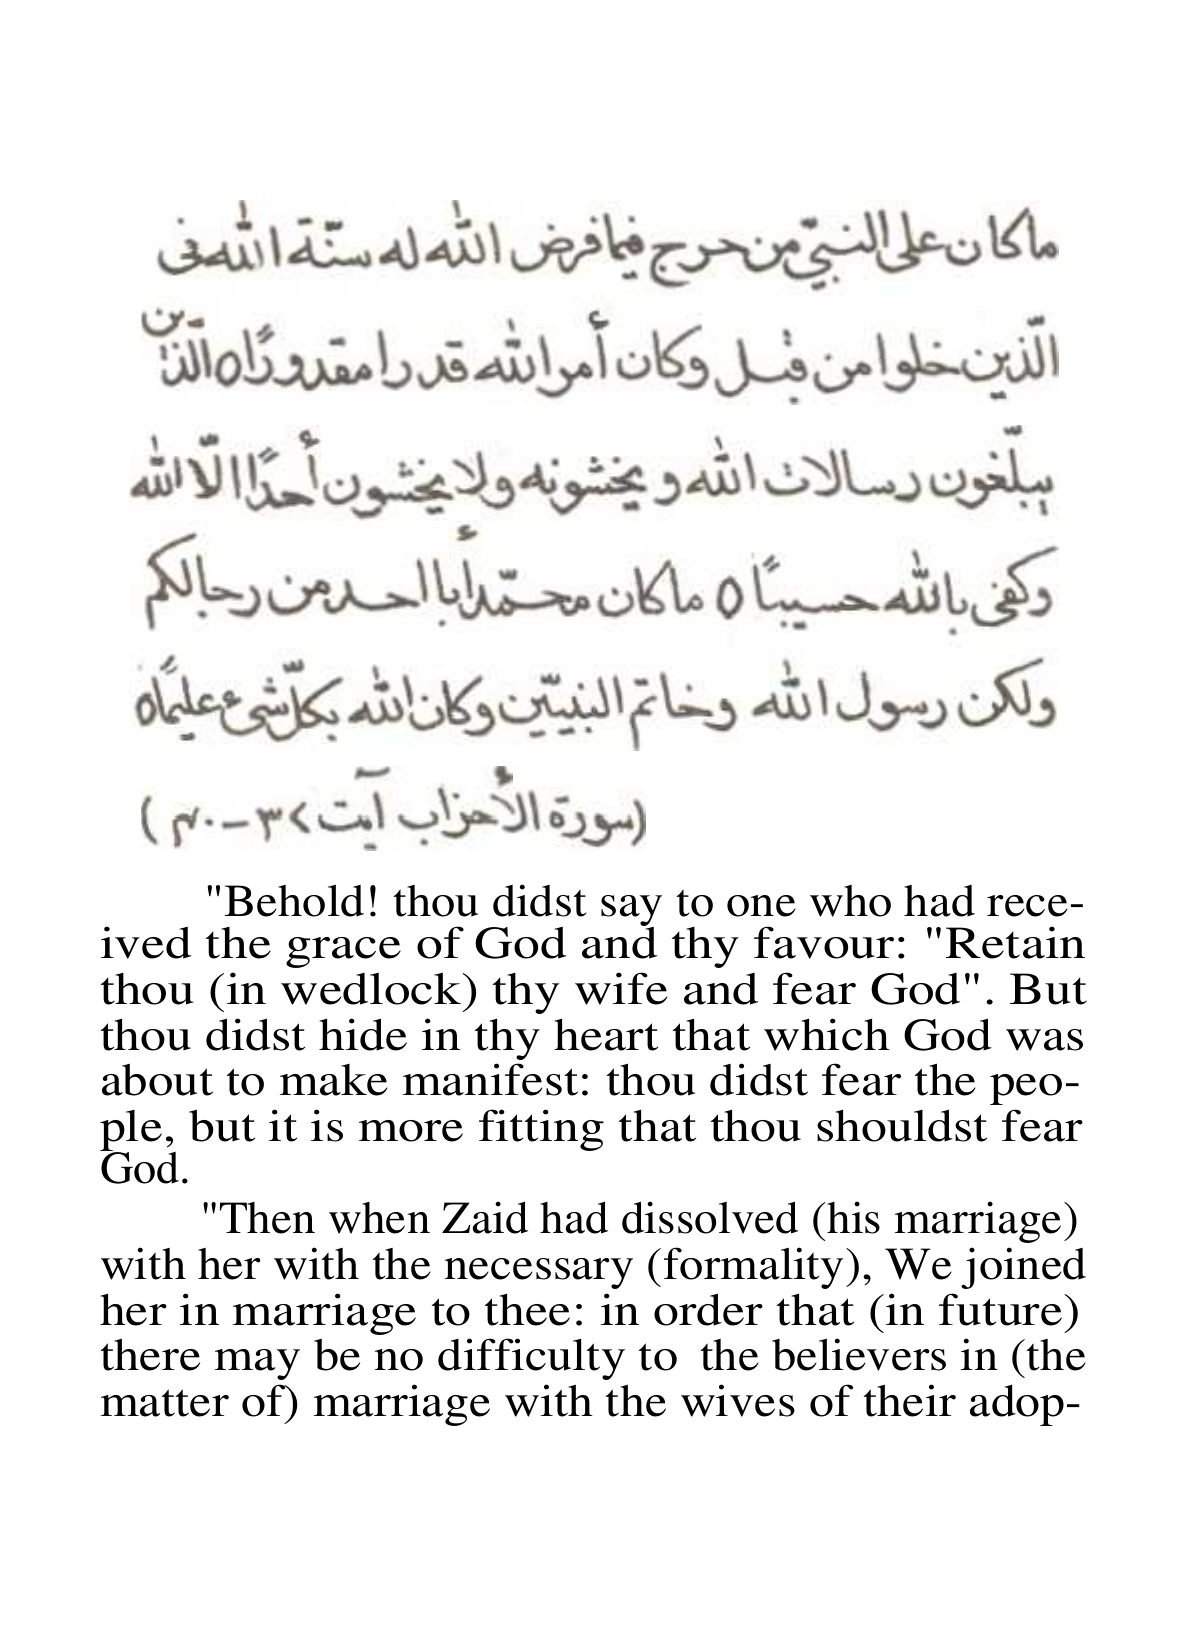 ماكان على النبيّ من حرج فيما فرض الله له سنّة الله فى
الّذين خلوا من قبل وكان أمر الله قدرا مقدورًا ٥ الّذين
يبلّغون رسالات الله ويخشونه ولا يخشون أحدًا الّا الله
وكفى بالله حسيبًا ٥ ماكان محمّد أبا احد من رجالكم
ولكن رسول الله وخاتم النبيّين وكان الله بكلّ شىء عليمًا ٥
(سورة الأحزاب آيت ٣٧-٤٠)
"Behold! thou didst say to one who had rece-
ived the grace of God and thy favour: "Retain
thou (in wedlock) thy wife and fear God". But
thou didst hide in thy heart that which God was
about to make manifest: thou didst fear the peo-
ple, but it is more fitting that thou shouldst fear
God.
"Then when Zaid had dissolved (his marriage)
with her with the necessary (formality), We joined
her in marriage to thee: in order that (in future)
there may be no difficulty to the believers in (the
matter of) marriage with the wives of their adop-